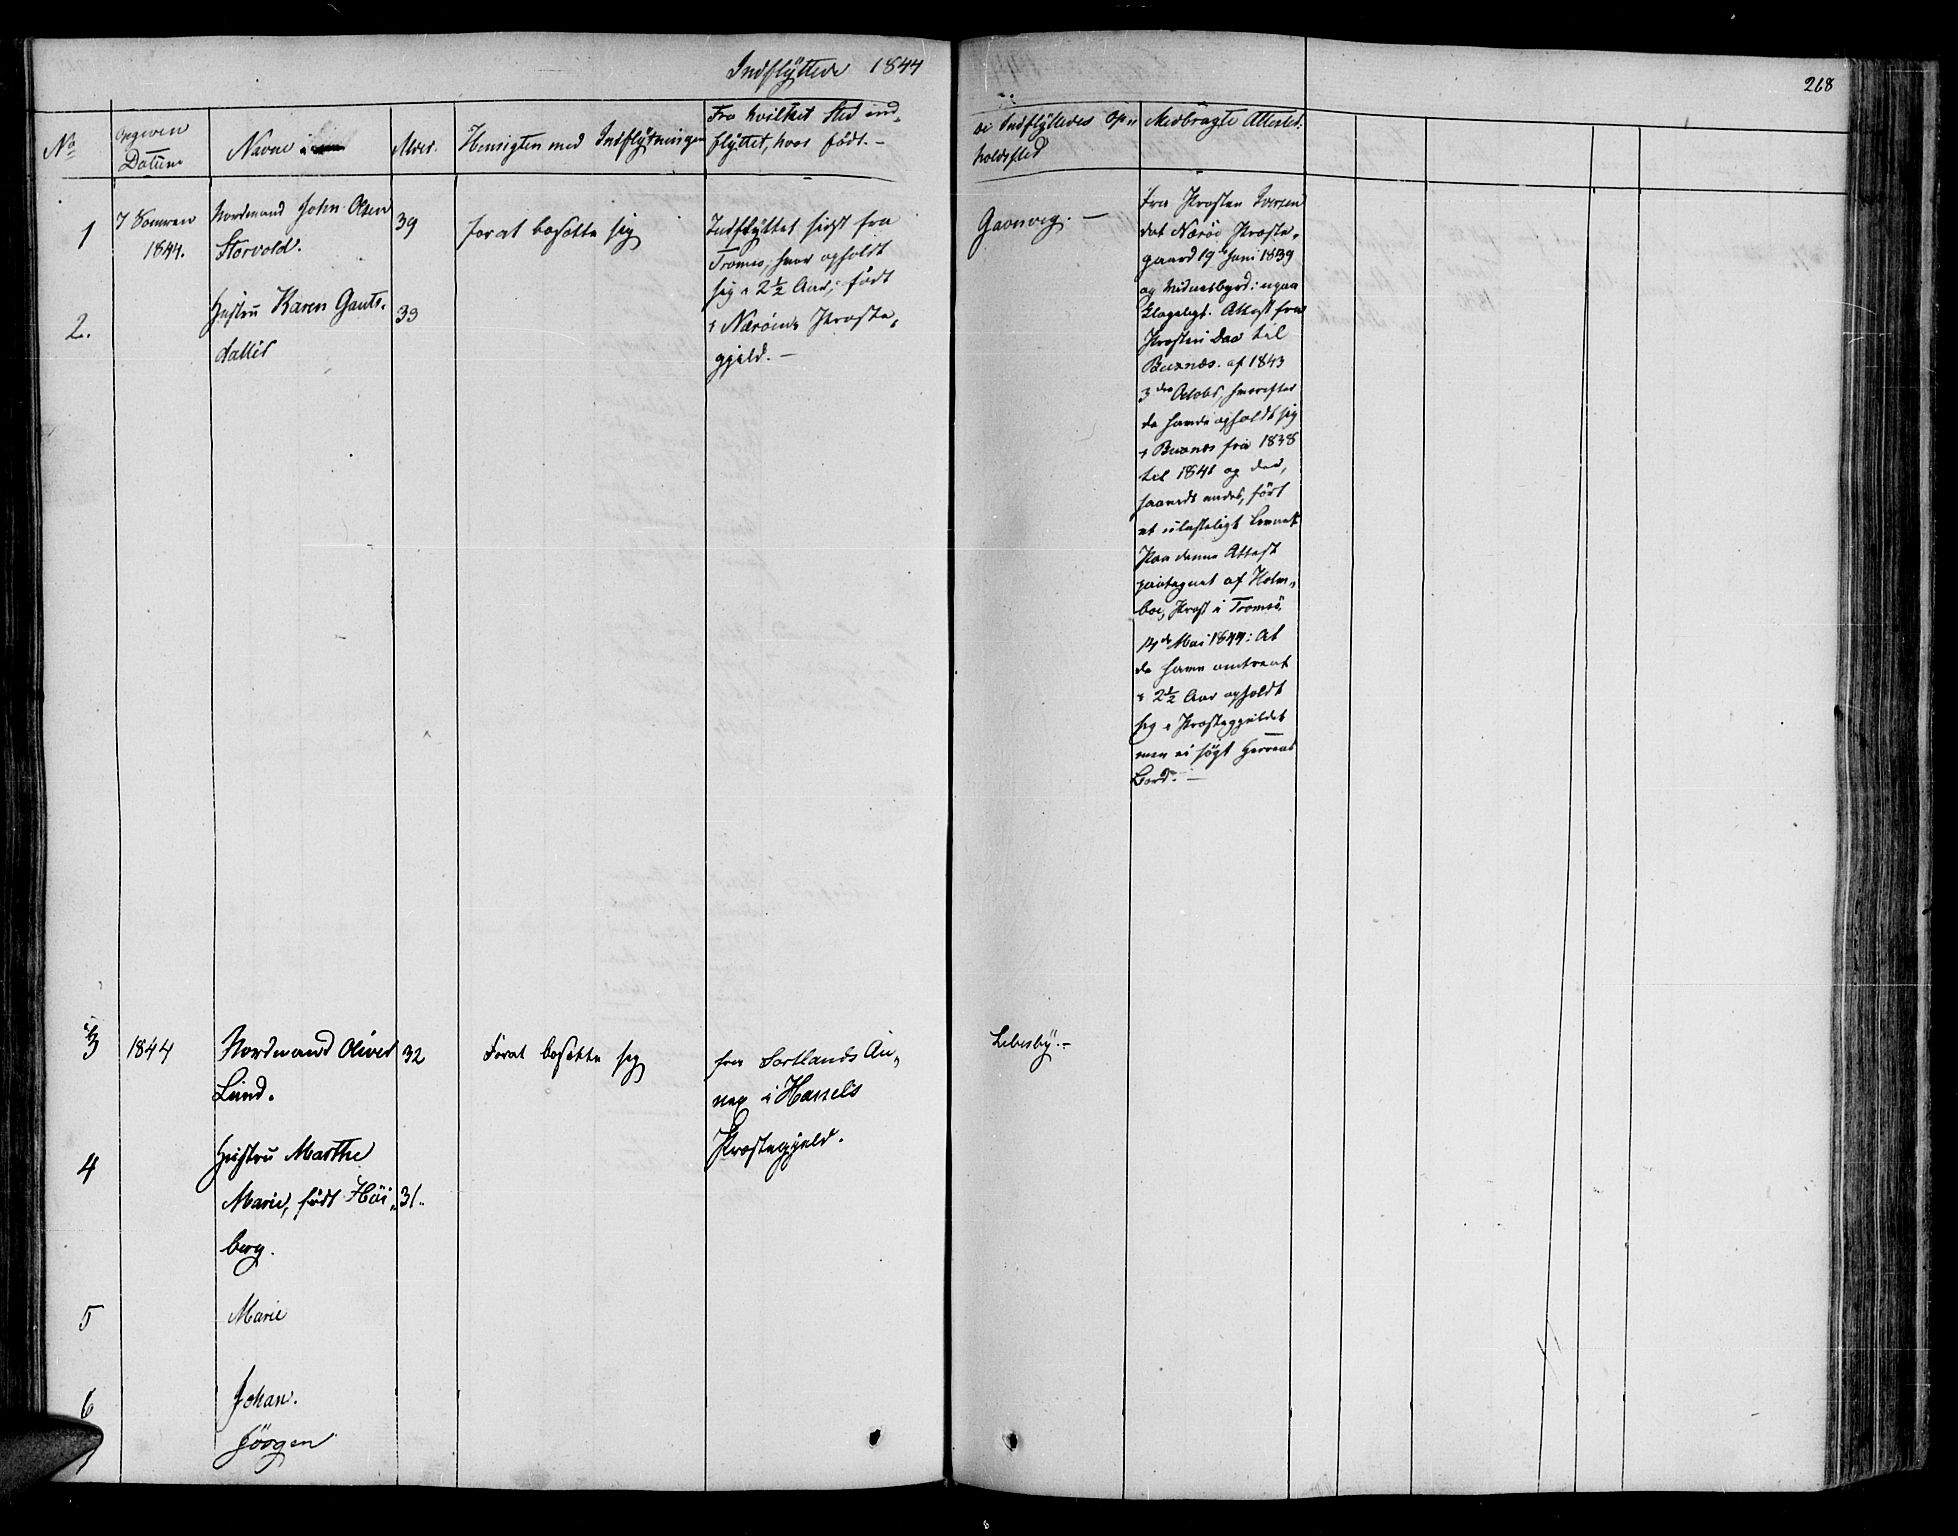 Indflÿttede 1844
268
No
Opgiven
Datum
Navne
Alder.
Hensigten med Indflÿtningen
Fra hvilket Sted ind-
flÿttet, hvor født.-
de Indflÿttedes Op-
holdssted
Medbragte Attester.
1
I Somren
1844.
Nordmand John Olsen
Storvold.
39
forat bosætte sig
Indflÿttet sidst fra
Tromsø, hvor opholdt
sig i 2½ Aar, født
i Nærøens Præste-
gjeld.-
Gaonvig.-
2.
Hustru Karen Gauts-
datter
33
Fra Præsten
dat Nærøe Præste-
gaard 19de Juni 1839
og Vidnesbyrd: upaa
klageligt. Attest fra
Præsten Daa til
Buxnæs. af 1843
3die Octobr, hvorefter
de havde opholdt sig
i Buxnæs fra 1838
til 1841 og der,
saavidt vides, ført
et ulasteligt Levnet
Paa denne Attest
paategnet af Holm-
boe, Præst i Tromsø.
de Mai 1844: At
de have omtrent
i 2½ Aar opholdt
sig i Præstegjeldet
men ei søgt Herrens
Bord.-
3
1844
Nordmand Oliver
Lund.
32
Forat bosætte sig
fra Sortlands An-
nex i Hassels
Præstegjeld.
Lebesbÿ.-
4
Hustru Marthe
Marie, født Höi-
berg.
31.
5
Marie
6
Johan.
Jörgen